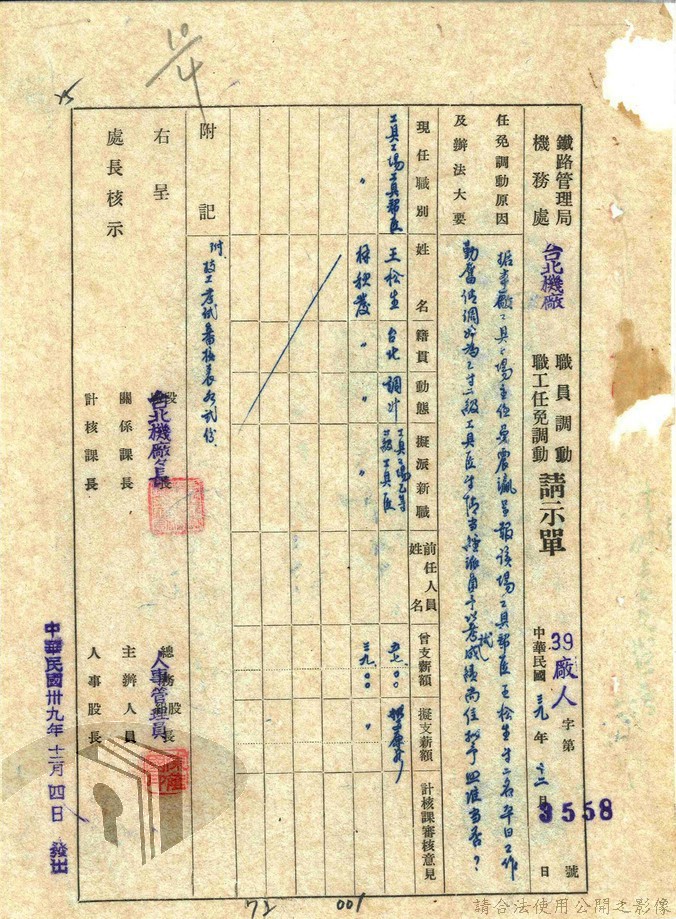 鐵路管理局
機務處
台北機廠
職員調動
職工任免調動
請示單
39廠人字第3558號
中華民國三九年十二月日
任免調動原因
及辦法大要
工具工場主任
呈報該場工具幫匠王松生等二名平日工作
勤奮請調升為乙等二級工具匠等情當經派員予以考試成績尚佳擬予照准當否？
現任職別
姓名
籍貫
動態
擬派新職
前任人員姓名
曾支薪額
擬支薪額
計核課審核意見
工具工場工具幫匠
王松生
台北
調升
工具工場乙等二級工具匠
〃
〃
〃
〃
三九〇〇
〃
附記
附技工考試審核表各貳份
右呈
處長核示
台北機廠長
關係課長
計核課長
人事管理員
總務股長
主辦人員
人事股長
中華民國卅九年十二月四日發出
001
請合法使用公開之影像